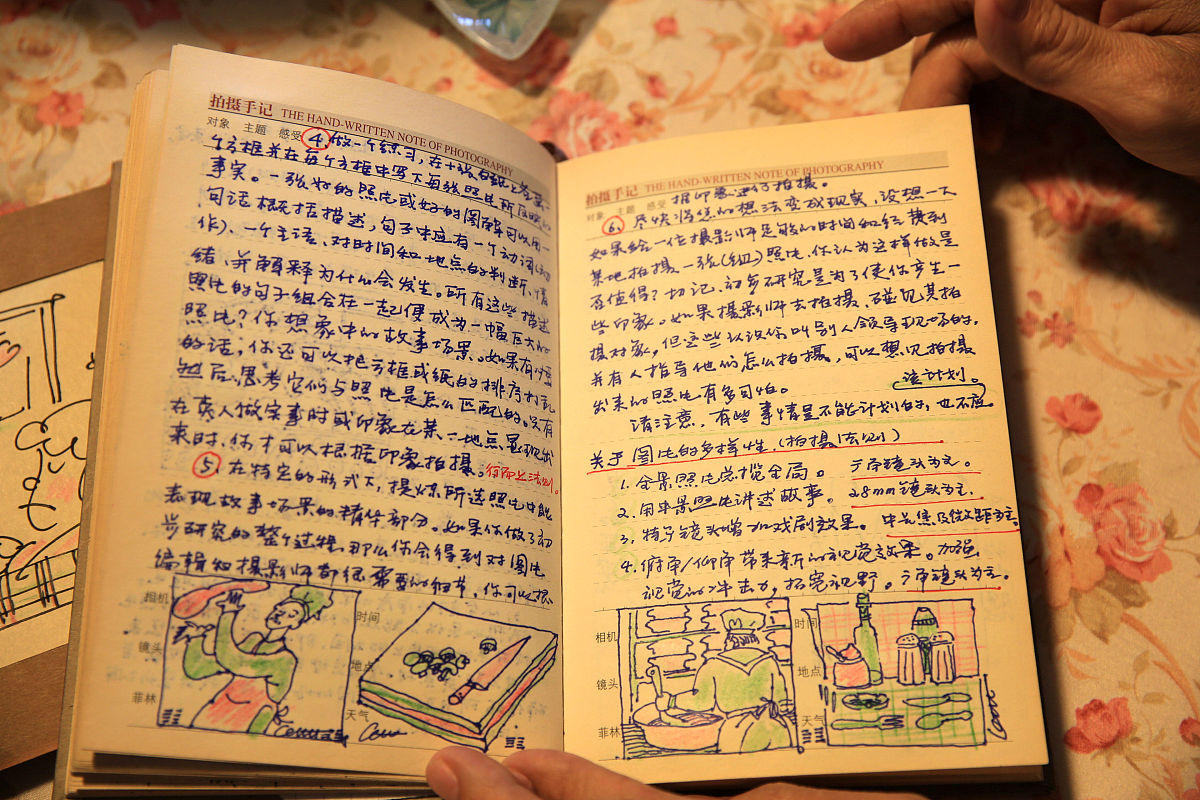 拍摄手记 THE HAND-WRITTEN NOTE OF PHOTOGRAPHY
对象 主题 感受 4.做一个练习,在十张白纸上签
个方框并在每个方框中写下每张照片所反映的
事实。一张好的照片或好的图解可以用一
句话概括描述,句子中应有一个动词(动
作)、一个主语、对时间和地点的判断、情
绪、并解释为什么会发生。所有这些描述
照片的句子组合在一起便成为一幅巨大的
照片?你想象中的故事场景。如果有必要
的话,你还可以把方框或纸的排序打乱
然后思考它们与照片是怎么匹配的。只有
在真人做实事时或印象在某一地点显现出
来时,你才可以根据印象拍摄。
5.在特定的形式下,提炼所选照片中能
表现故事场景的精华部分。如果你做了初
步研究的整个过程,那么你会得到对图片
编辑和摄影师都很重要的细节,你可以根
相机
时间
镜头
地点
菲林
天气
拍摄手记 THE HAND-WRITTEN NOTE OF PHOTOGRAPHY
对象 主题 感受 据印象进行拍摄。
6.尽快将您的想法变成现实,设想一下
如果给一位摄影师足够的时间和经费到
某地拍摄一张(组)照片,你认为这样做是
否值得?切记,初步研究是为了使你产生一
些印象。如果摄影师去拍摄、碰见其拍
摄对象,但这些认识你叫别人领导现场的,
并有人指导他们怎么拍摄,可以想见拍摄
出来的照片有多可怕。
该计划。
请注意,有些事情是不能计划的,也不应
关于图片的多样性.(拍摄法则)
1.全景照片总揽全局。 广角镜头为主。
2.用中景照片讲述故事。 28mm镜头为主.
3.特写镜头增加戏剧效果。 中长焦及微距为主。
4.俯角/仰角带来新的视觉效果。加强
视觉的冲击力,拓宽视野。广角镜头为主.
相机
时间
镜头
地点
菲林
天气